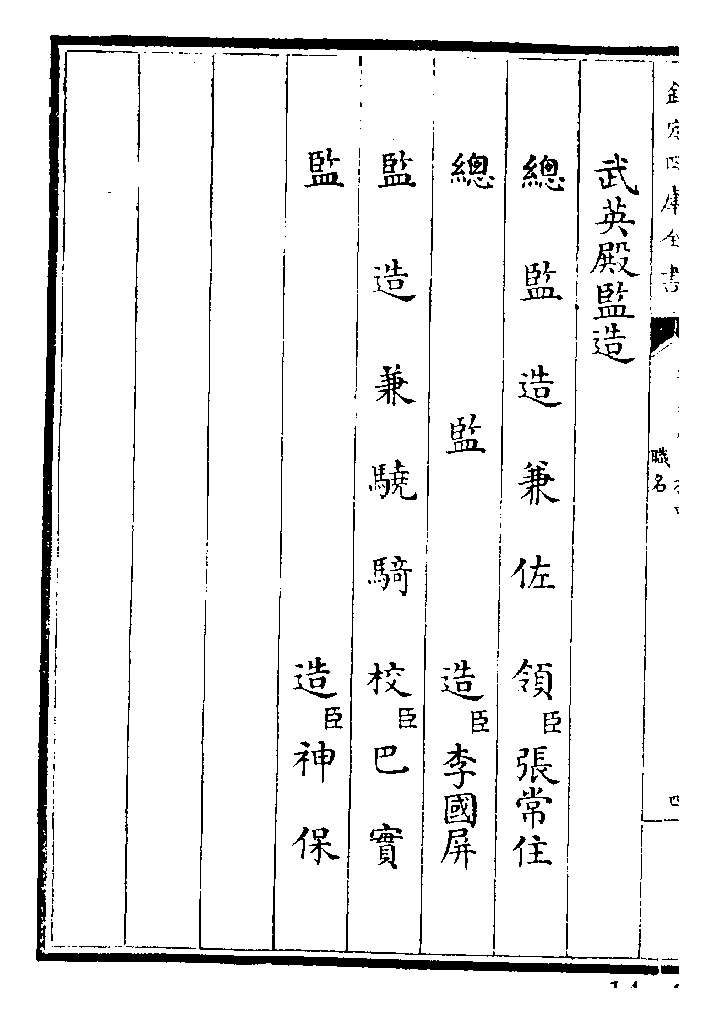 欽定四庫全書
職名
四
武英殿監造
總監造兼佐領臣張常住
總監造臣李國屏
監造兼驍騎校臣巴實
監造臣神保